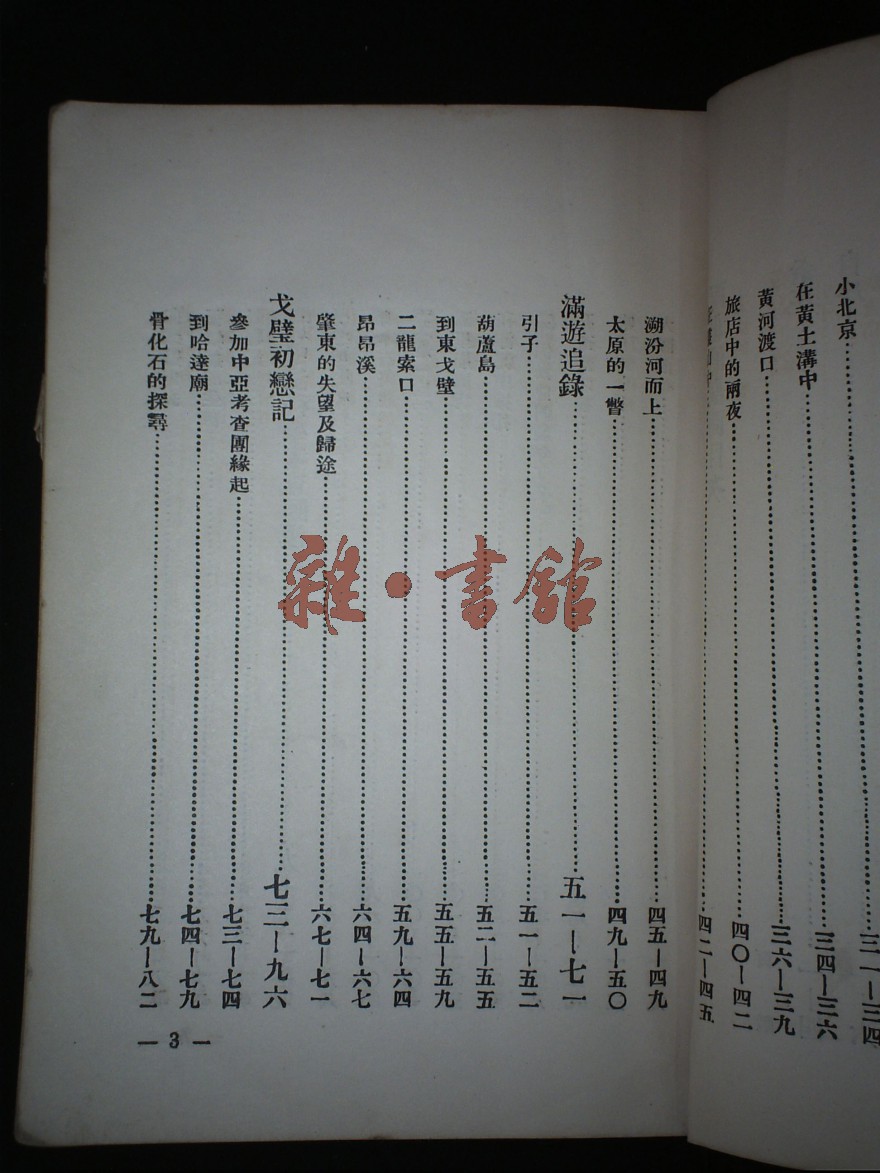 小北京……三一—三四
在黃土溝中……三四—三六
黃河渡口……三六—三九
旅店中的兩夜……四〇—四二
山中……四二—四五
溯汾河而上……四五—四九
太原的一瞥……四九—五〇
滿遊追錄……五一—七一
引子……五一—五二
葫蘆島……五二—五五
到東戈壁……五五—五九
二龍索口……五九—六四
昂昂溪……六四—六七
肇東的失望及歸途……六七—七一
戈壁初戀記……七三—九六
參加中亞考查團緣起……七三—七四
到哈達廟……七四—七九
骨化石的探尋……七九—八二
— 3 —
雜·書館